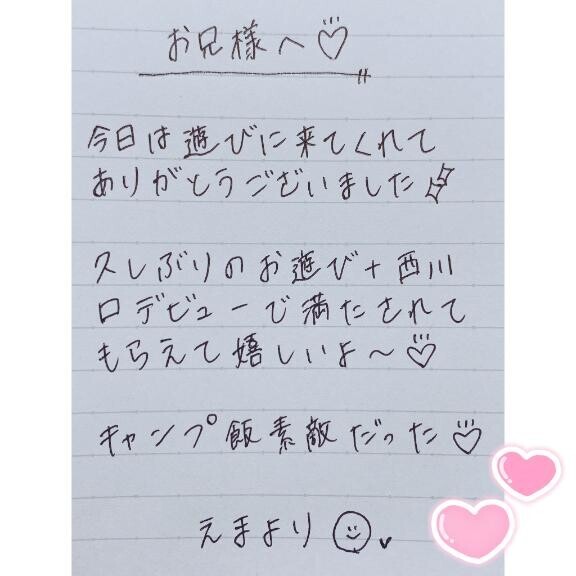 お兄様へ♡
今日は遊びに来てくれて
ありがとうございました
久しぶりのお遊び+西川
口デビューで満たされて
もらえて嬉しいよ〜♡
キャンプ飯素敵だった♡
えまより